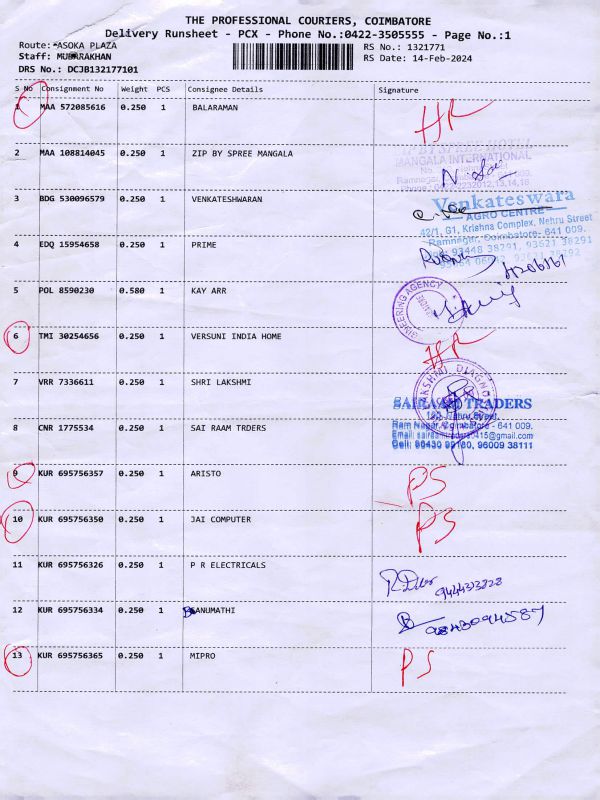 THE PROFESSIONAL COURIERS, COIMBATORE
Delivery Runsheet - PCX - Phone No.:0422-3505555 - Page No.:1
Route: ASOKA PLAZA
RS No.: 1321771
Staff: MUBARAKHAN
RS Date: 14-Feb-2024
DRS No.: DCJB132177101
S No Consignment No Weight PCS Consignee Details Signature
1 MAA 572085616 0.250 1 BALARAMAN HR
2 MAA 108814045 0.250 1 ZIP BY SPREE MANGALA
MANGALA INTERNATIONAL
3 BDG 530096579 0.250 1 VENKATESHWARAN
Venkateswara
AGRO CENTRE
42/1, G1, Krishna Complex, Nehru Street
Ramnagar, Coimbatore- 641 009.
93448 38291, 93621 38291
4 EDQ 15954658 0.250 1 PRIME
5 POL 8590230 0.580 1 KAY ARR
6 TMI 30254656 0.250 1 VERSUNI INDIA HOME HR
7 VRR 7336611 0.250 1 SHRI LAKSHMI
SAIRAAM TRADERS
Ram Nagar, Coimbatore - 641 009.
8 CNR 1775534 0.250 1 SAI RAAM TRDERS
Cell: 90430 99180, 96009 38111
9 KUR 695756357 0.250 1 ARISTO PS
10 KUR 695756350 0.250 1 JAI COMPUTER PS
11 KUR 695756326 0.250 1 P R ELECTRICALS
12 KUR 695756334 0.250 1 BANUMATHI 9843094587
13 KUR 695756365 0.250 1 MIPRO PS